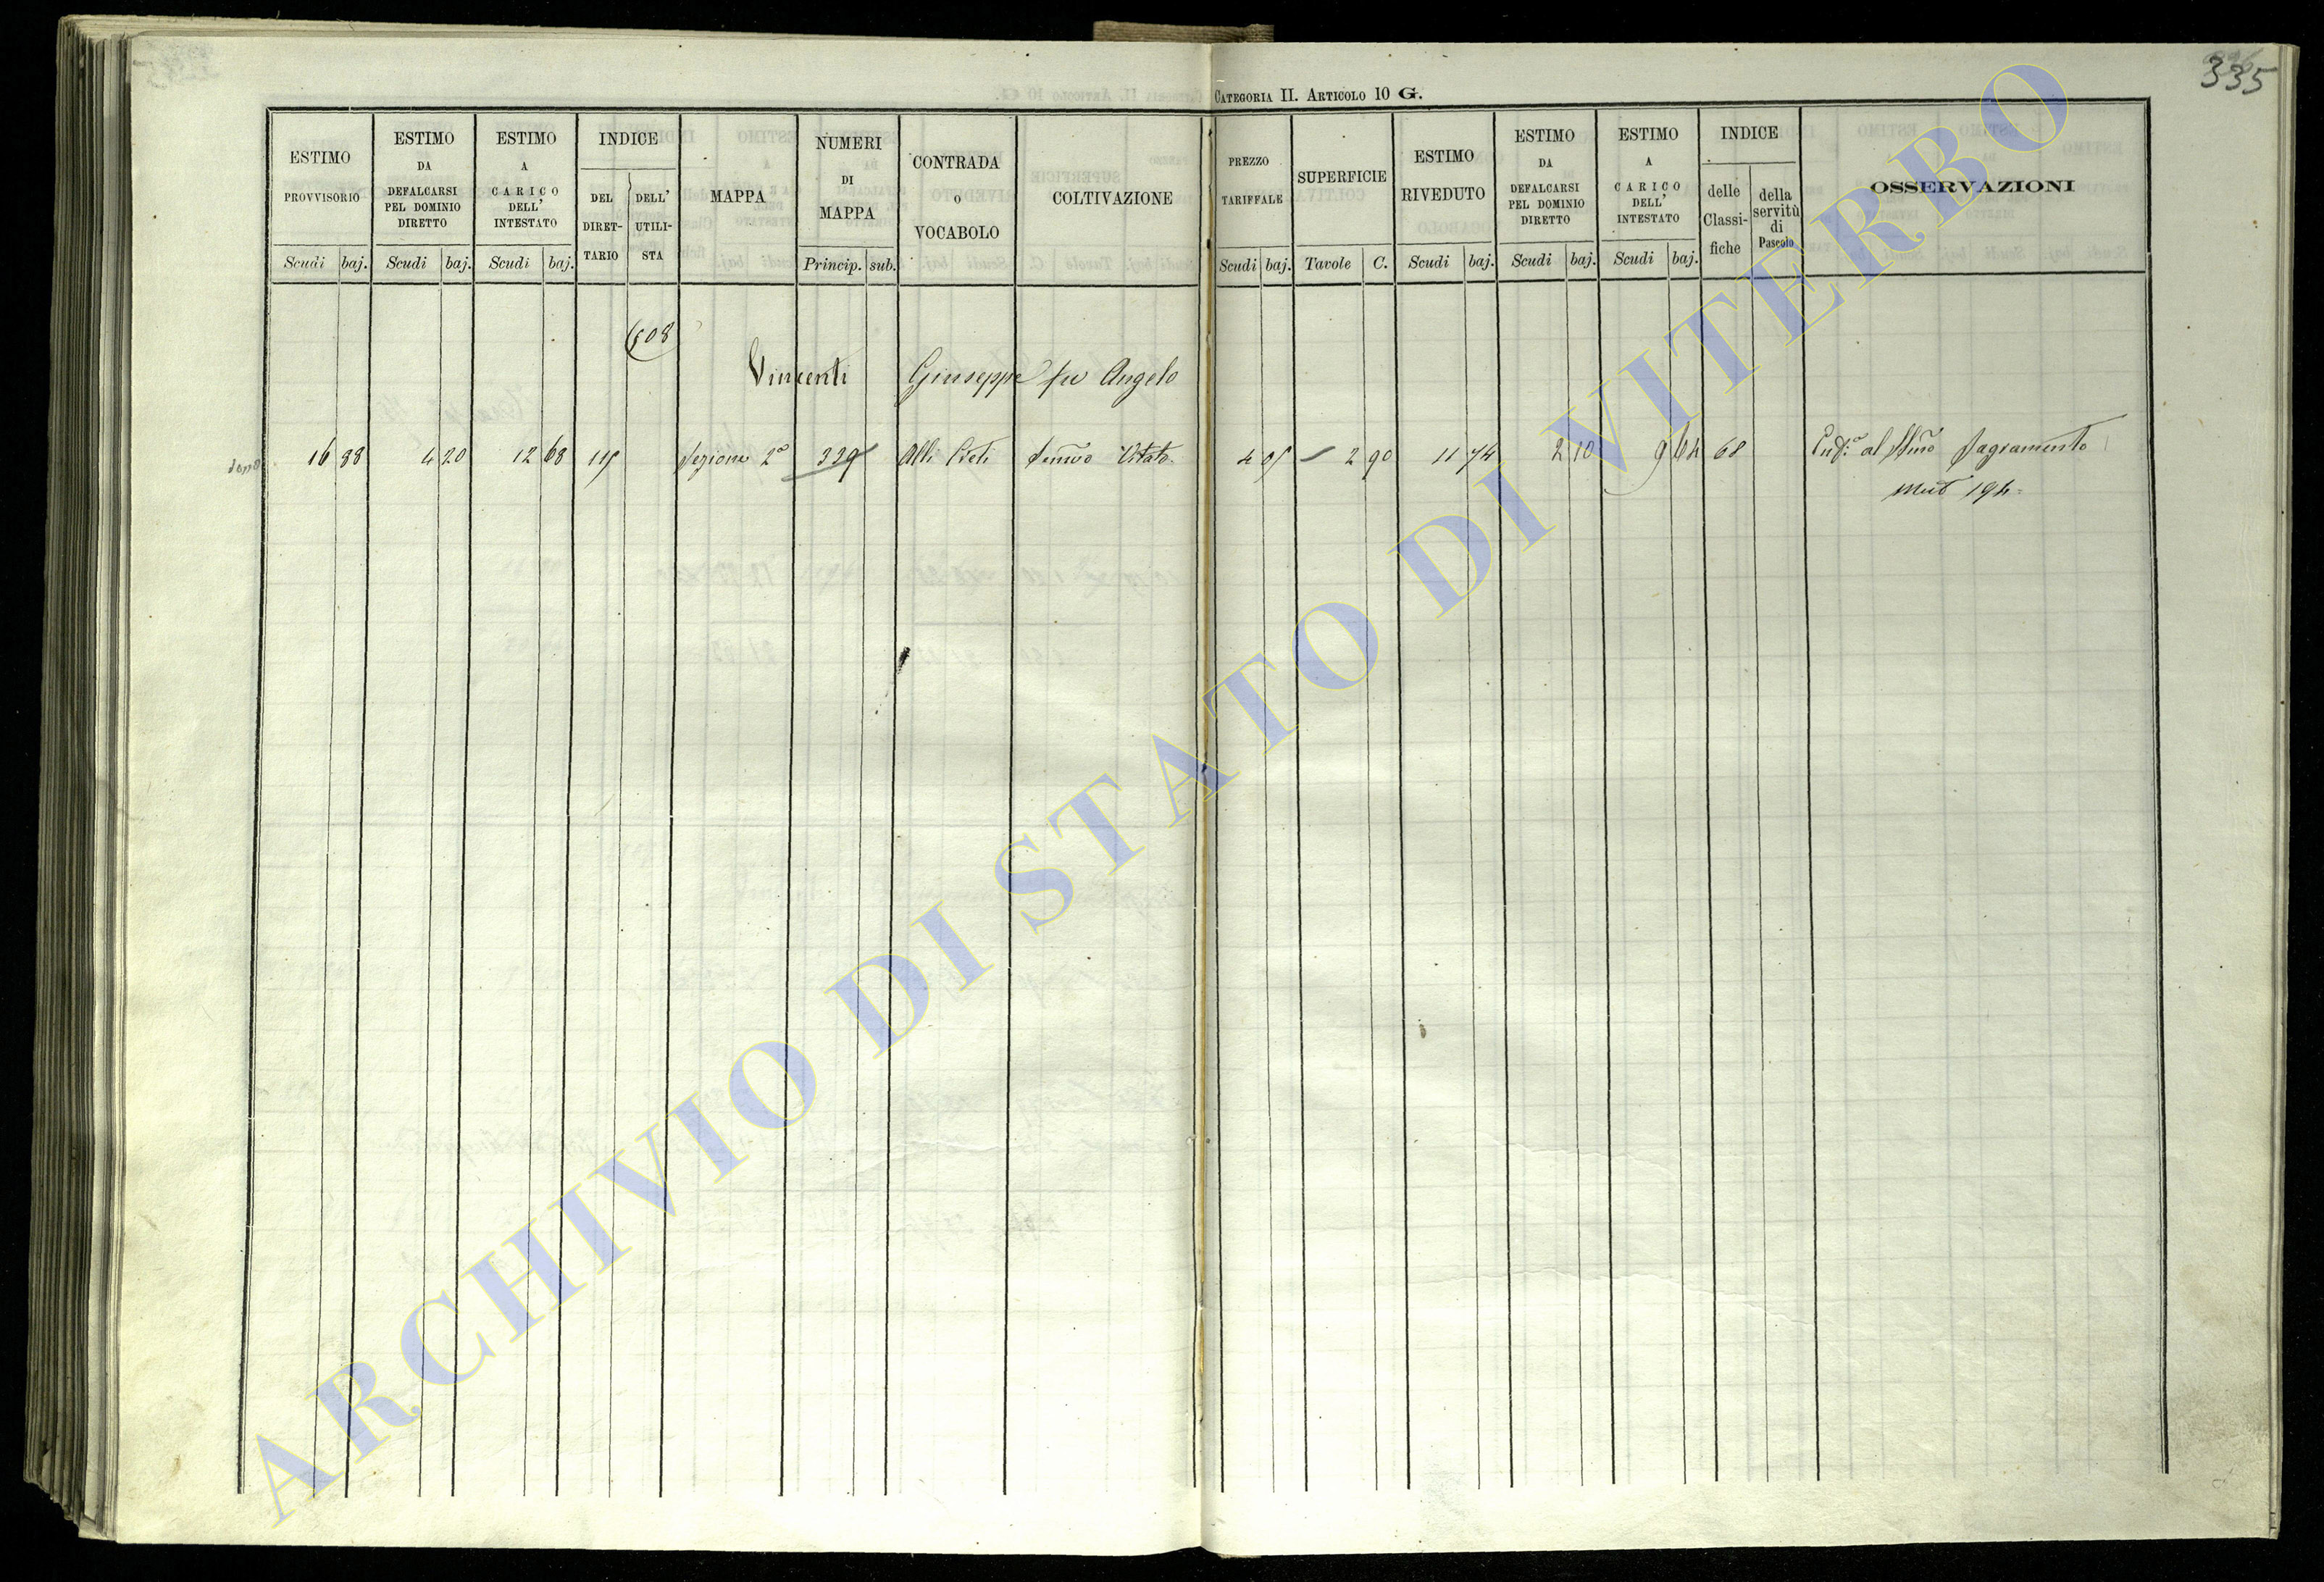 335
CATEGORIA II. ARTICOLO 10 G.
ESTIMO PROVVISORIO
Scudi baj.
ESTIMO DA DEFALCARSI PEL DOMINIO DIRETTO
Scudi baj.
ESTIMO A CARICO DELL' INTESTATO
Scudi baj.
INDICE
DEL DIRET-TARIO
DELL' UTILI-STA
MAPPA
NUMERI DI MAPPA
Princip. sub.
CONTRADA o VOCABOLO
COLTIVAZIONE
PREZZO TARIFFALE
Scudi baj.
SUPERFICIE
Tavole C.
ESTIMO RIVEDUTO
Scudi baj.
ESTIMO DA DEFALCARSI PEL DOMINIO DIRETTO
Scudi baj.
ESTIMO A CARICO DELL' INTESTATO
Scudi baj.
INDICE
delle Classi-fiche
della servitù di Pascolo
OSSERVAZIONI
508
Vincenti Giuseppe fu Angelo
16 88 4 20 12 68 115 Sezione 2ª 339 Alli Preti Semvo Vitato 4 05 2 90 11 74 2 10 9 64 68 al SSmo Sagramento
194
ARCHIVIO DI STATO DI VITERBO